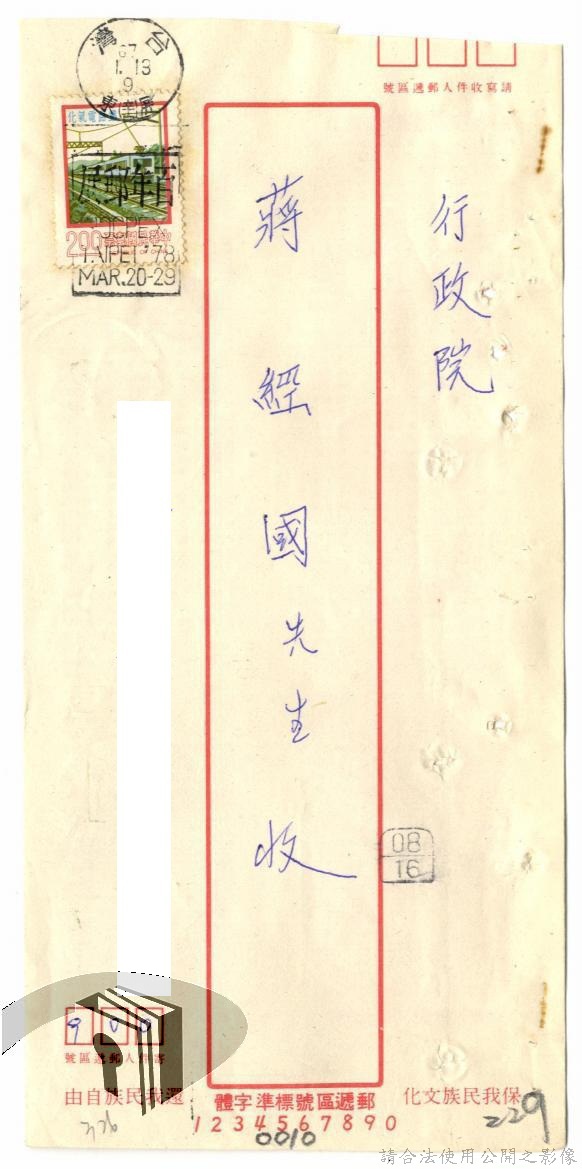 請寫收件人郵遞區號
行政院
蔣經國先生收
台灣
67
1.13
9
鐵路電氣化
200
中華民國郵票
TAIPEI '78
MAR.20-29
08
16
900
寄件人郵遞區號
保我民族文化
還我民族自由
郵遞區號標準字體
1234567890
0010
229
請合法使用公開之影像